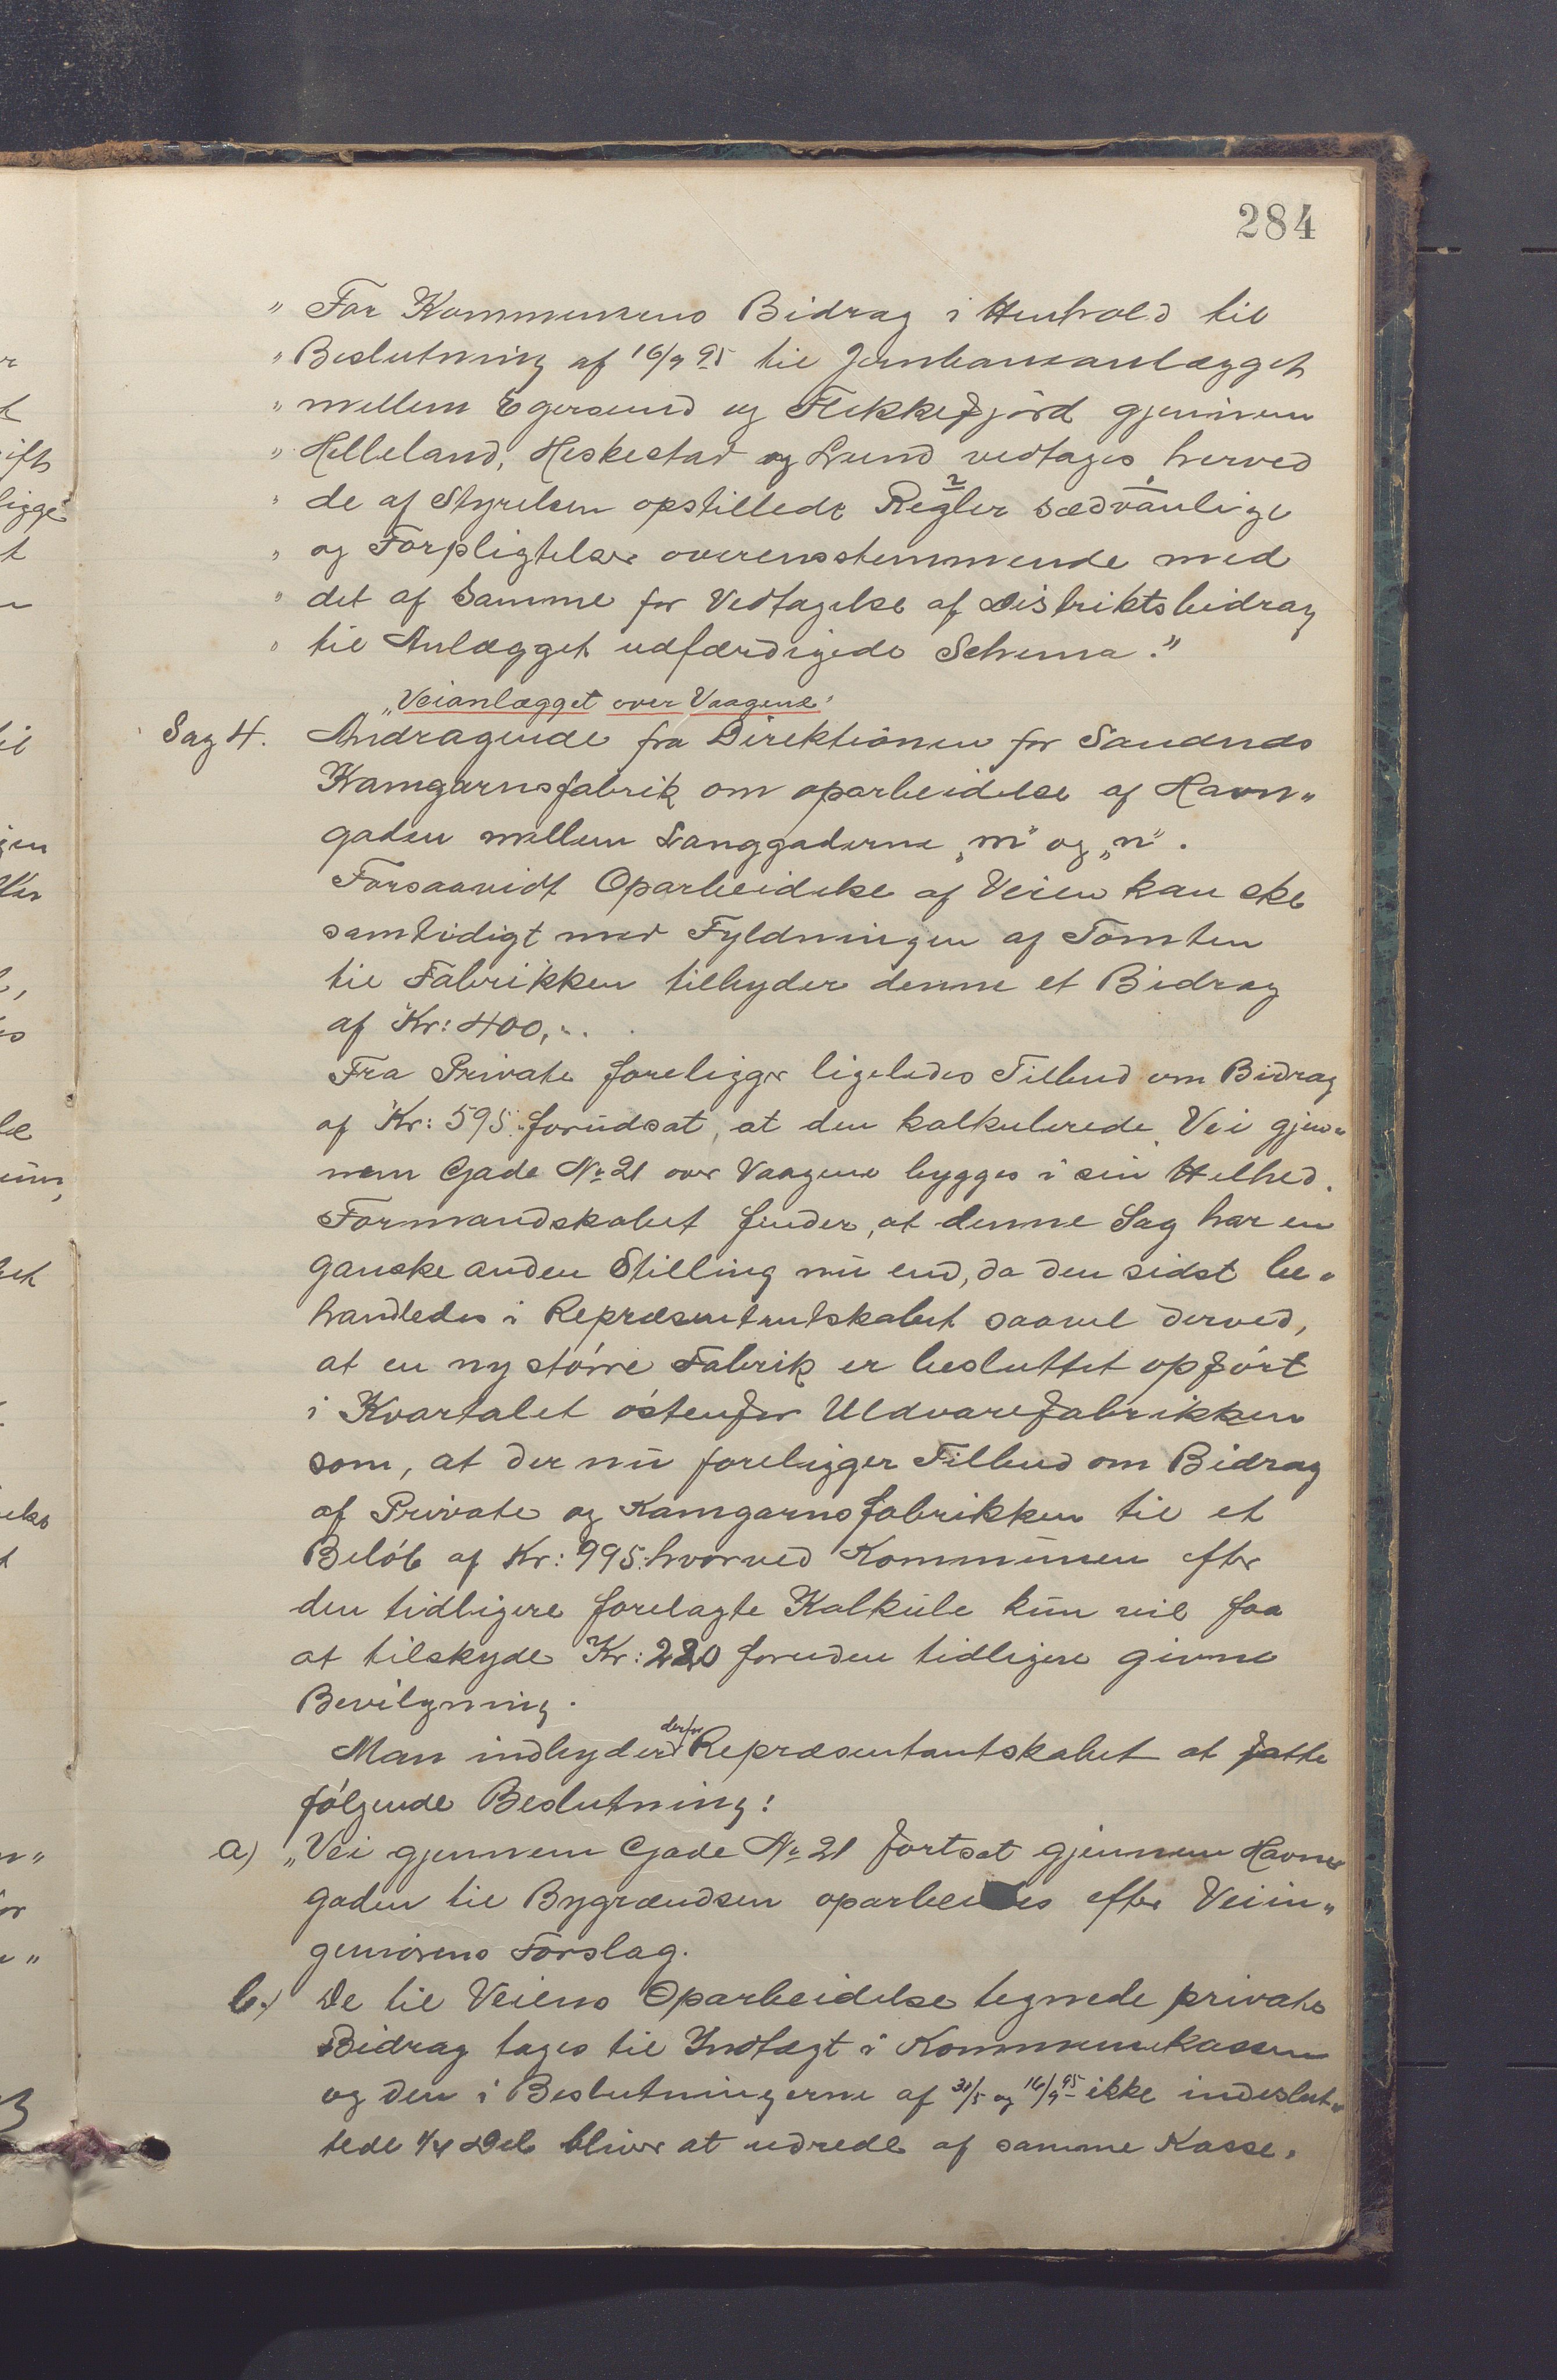 284
" For Kommunens Bidrag i Henhold til
" Beslutning af 16/9 95 til Jernbaneanlægget
" mellem Egersund og Flekkefjord gjennem
" Helleland, Heskestad og Lund vedtages herved
" de af Styrelsen opstillede Regler sædvanlige
" og Forpligtelser overensstemmende med
" det af Samme for Vedtagelse af Distriktsbidrag
" til Anlægget udfærdigede Schema."
"Veianlægget over Vaagene"
Sag 4. Andragende fra Direktionen for Sandnes
Kamgarnsfabrik om oparbeidelse af Havn"
gaden mellem Langgaderne "m" og "n".
Forsaavidt Oparbeidelse af Veien kan ske
samtidigt med Fyldningen af Tomten
til Fabrikken tilbyder denne et Bidrag
af Kr: 400,-.
Fra Private foreligger ligeledes Tilbud om Bidrag
af Kr: 595 forudsat, at den kalkulerede Vei gjen"
nem Gade No 21 over Vaagene bygges i sin Helhed.
Formandskabet finder, at denne Sag har en
ganske anden Stilling nu end, da den sidst be"
handledes i Repræsentantskabet saavel derved,
at en ny større Fabrik er besluttet opført
i Kvartalet østenfor Uldvarefabrikken
som, at der nu foreligger Tilbud om Bidrag
af Private og Kamgarnsfabrikken til et
Beløb af Kr: 995 hvorved Kommunen efter
den tidligere forelagte Kalkule kun vil faa
at tilskyde Kr: 220 foruden tidligere givne
Bevilgning.
Man indbyder derfor Repræsentantskabet at fatte
følgende Beslutning:
a) "Vei gjennem Gade No 21 fortsat gjennem Havne
gaden til Bygrændsen oparbeides efter Veiin"
geniørens Forslag.
b.) De til Veiens Oparbeidelse tegnede private
Bidrag tages til Indtægt i Kommunekassen
og den i Beslutningerne af 31/5 og 16/9 95 ikke indeslut"
tede 1/4 Del bliver at udrede af samme Kasse.